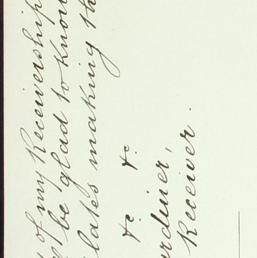 of my Receivership
be glad to know
making th
&c &c.
Receiver.